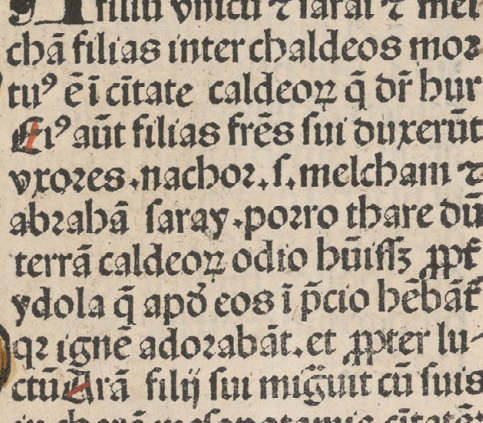 filiū vnicū ⁊ sarai ⁊ mel
chā filias inter chaldeos moꝛ
tuꝰ ē ī cītate caldeoꝝ q̄ dr̄ hur
Eiꝰ aūt filias frēs sui duxerūt
vxoꝛes.nachoꝛ.s.melcham ⁊
abrahā saray.poꝛro thare dū
terrā caldeoꝝ odio hūissꝫ ꝓpt̄
ydola q̄ apð eos ī p̄cio hēbāt̄
qꝛ ignē adoꝛabāt.et ꝓpter lu-
ctū Arā filij sui mig̃uit cū suis